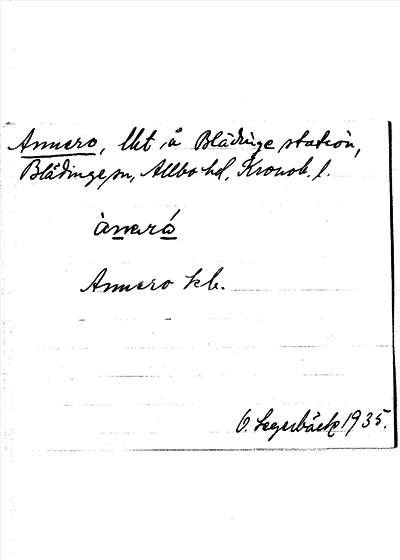 Annero, lht å Blädinge station,
Blädinge sn, Allbo hd, Kronob. l.
ànaró
Annero kb.
O. Segerbäck 1935.